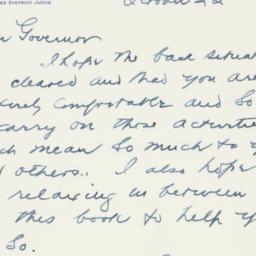 ES DISTRICT JUDGE
Governor
I hope the back situat
cleared and that you are
comfortable and so
carry on those activitie
ch mean so much to y
others. I also hope
relaxing in between
this book to help y
so.